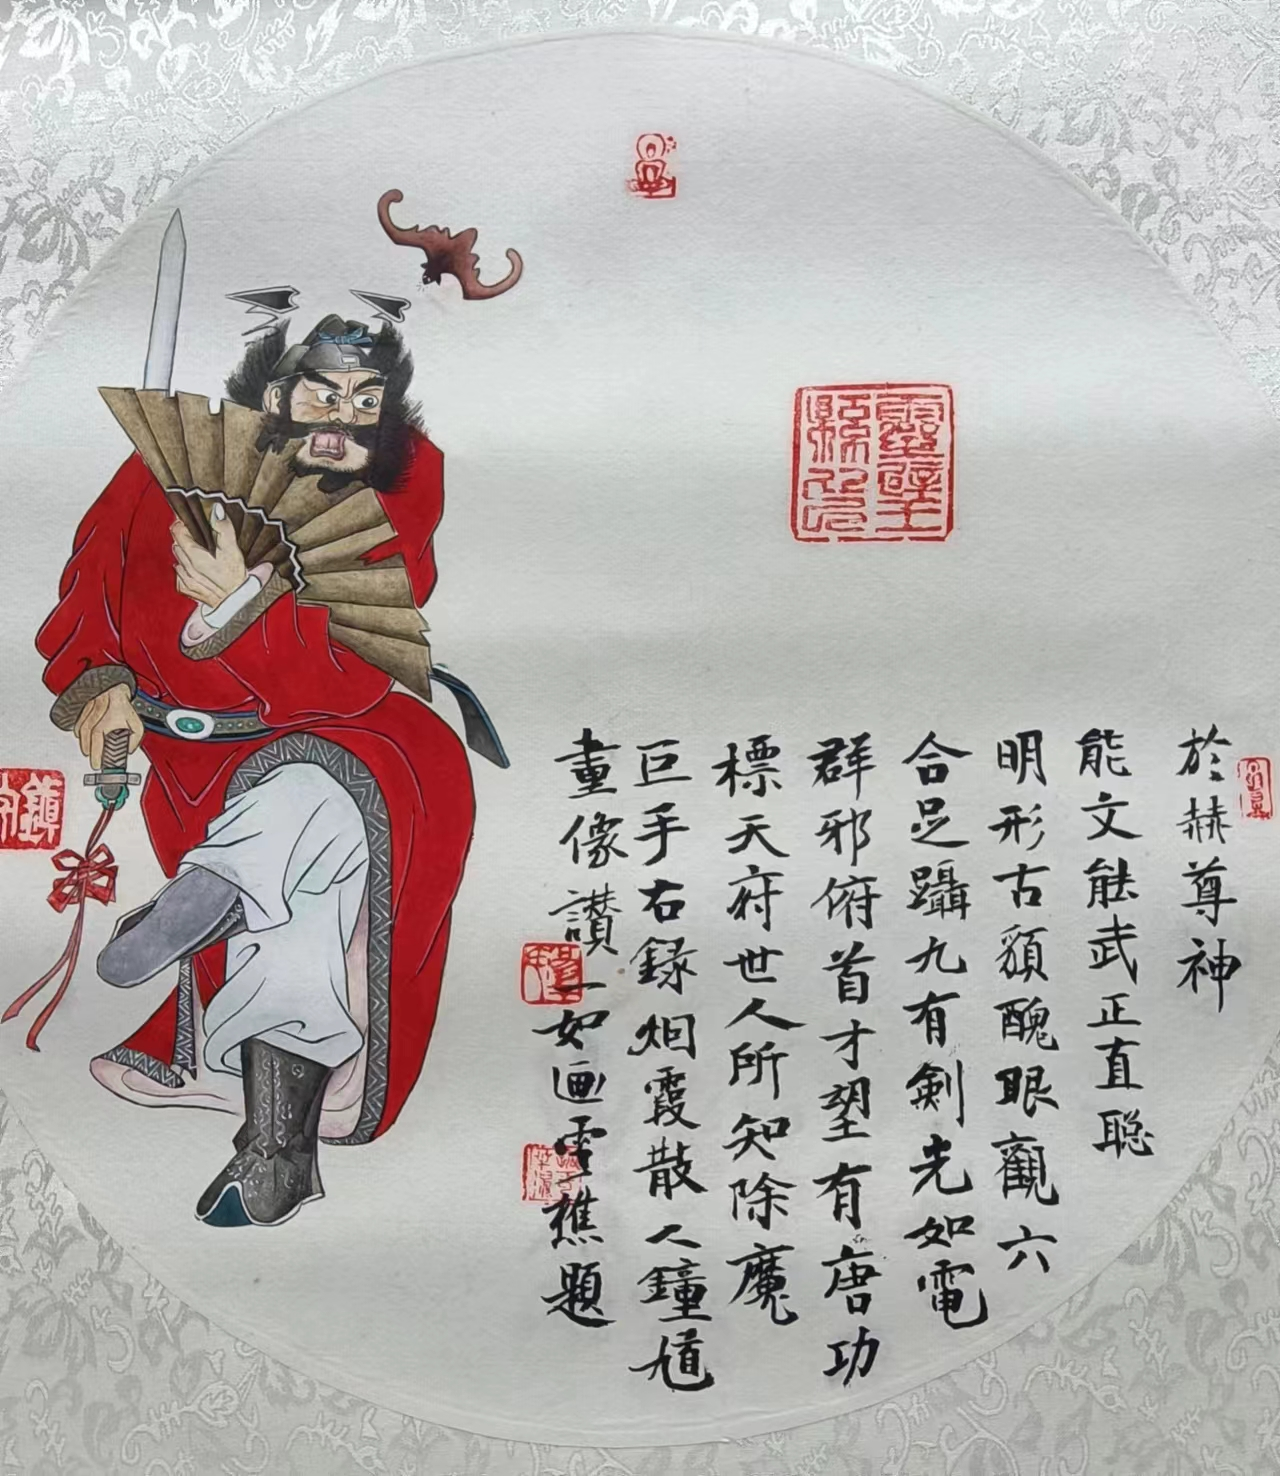 於赫尊神
能文能武正直聡
明形古額醜眼觀六
合足躡九有劍光如電
群邪俯首才望有唐功
標天府世人所知除魔
巨手右録烟霞散人鐘馗
畫像讃一如画雪樵題
靈璧縣印
鎮